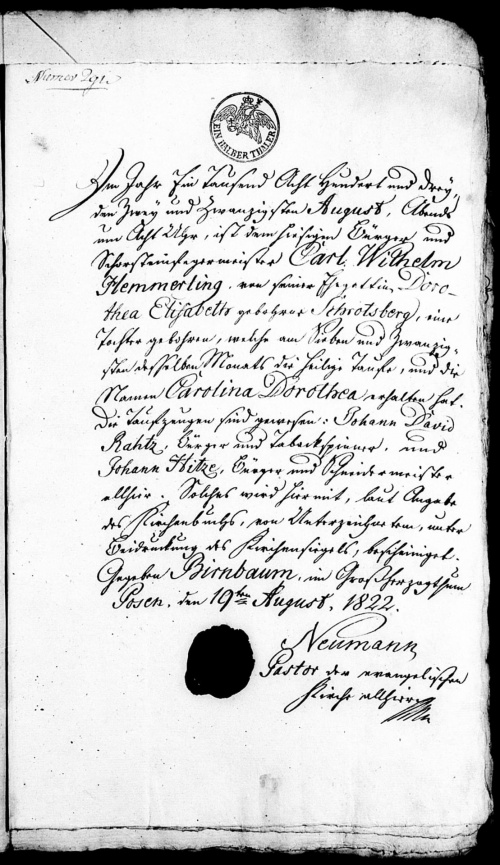 Numero 291.
EIN HALBER THALER
Im Jahr Ein Tausend Acht Hundert und drey,
den Zwey und Zwanzigsten August, Abends
um Acht Uhr, ist dem hiesigen Bürger und
Schorsteinfegermeister Carl Wilhelm
Hemmerling, von seiner Ehegattin Doro-
thea Elisabeth gebohrne Schrotsberg, eine
Tochter gebohren, welche am Sieben und Zwanzig-
sten desselben Monats die heilige Taufe, und die
Namen Carolina Dorothea erhalten hat.
Die Taufzeugen sind gewesen: Johann David
Rahtz, Bürger und Tabackspinner, und
Johann Hitze, Bürger und Schneidermeister
allhier. Solches wird hiermit, laut Angabe
des Kirchenbuchs, von Unterzeichnetem, unter
Beidruckung des Kirchensiegels, bescheiniget.
Gegeben Birnbaum, im Großherzogthum
Posen, den 19ten August, 1822.
Neumann
Pastor der evangelischen
Kirche allhier